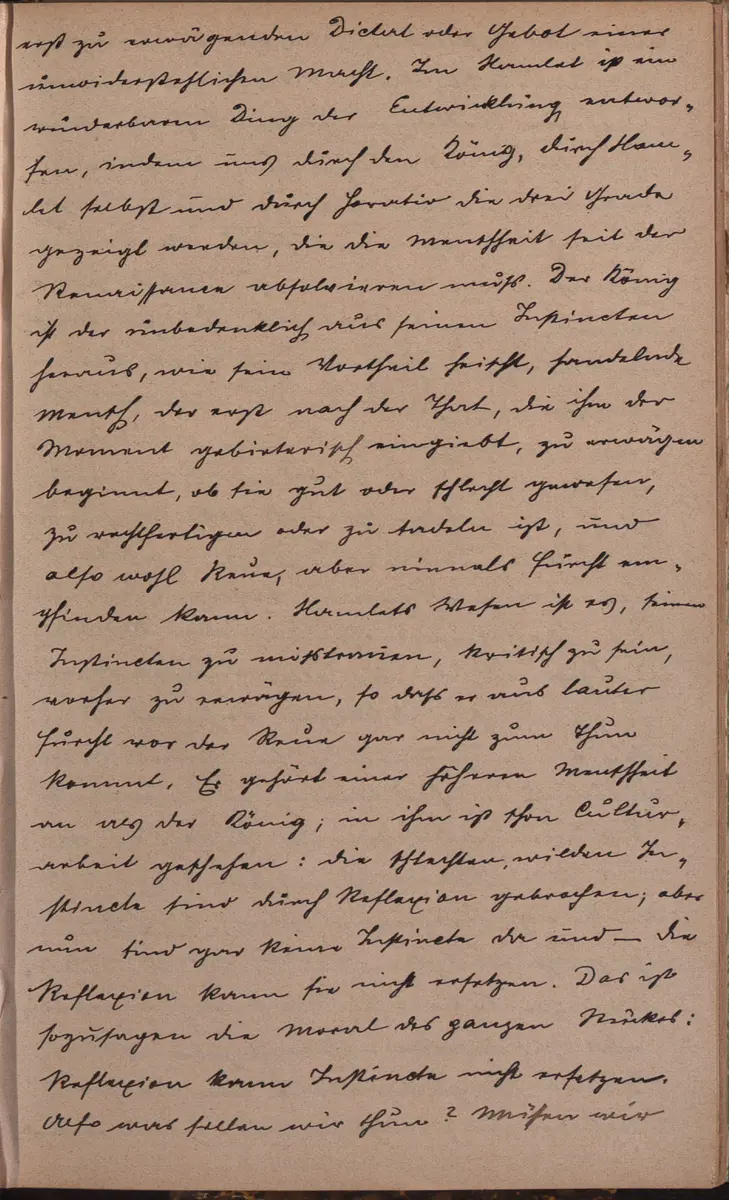 erst zu erwägenden Dictat oder Gebot einer
unwiderstehlichen Macht. Im Hamlet ist ein
wunderbarer Ding der Entwicklung entwor-
fen, indem uns durch den König, durch Ham-
let selbst und durch Horatio die drei Grade
gezeigt werden, die die Menschheit seit der
Renaissance absolvieren muß. Der König
ist der unbedenklich aus seinen Instincten
heraus, wie sein Vortheil heischt, handelnde
Mensch, der erst nach der That, die ihm der
Moment gebieterisch eingiebt, zu erwägen
beginnt, ob sie gut oder schlecht gewesen,
zu rechtfertigen oder zu tadeln ist, und
also wohl Reue, aber niemals Furcht em-
pfinden kann. Hamlets Wesen ist es, seinen
Instincten zu mißtrauen, kritisch zu sein,
vorher zu erwägen, so daß er aus lauter
Furcht vor der Reue gar nicht zum Thun
kommt. Er gehört einer höheren Menschheit
an als der König; in ihm ist schon Cultur-
arbeit geschehen: die schlechten, wilden In-
stincte sind durch Reflexion gebrochen; aber
nun sind gar keine Instincte da und — die
Reflexion kann sie nicht ersetzen. Das ist
sozusagen die Moral des ganzen Stückes:
Reflexion kann Instincte nicht ersetzen.
Also was sollen wir thun? Müssen wir